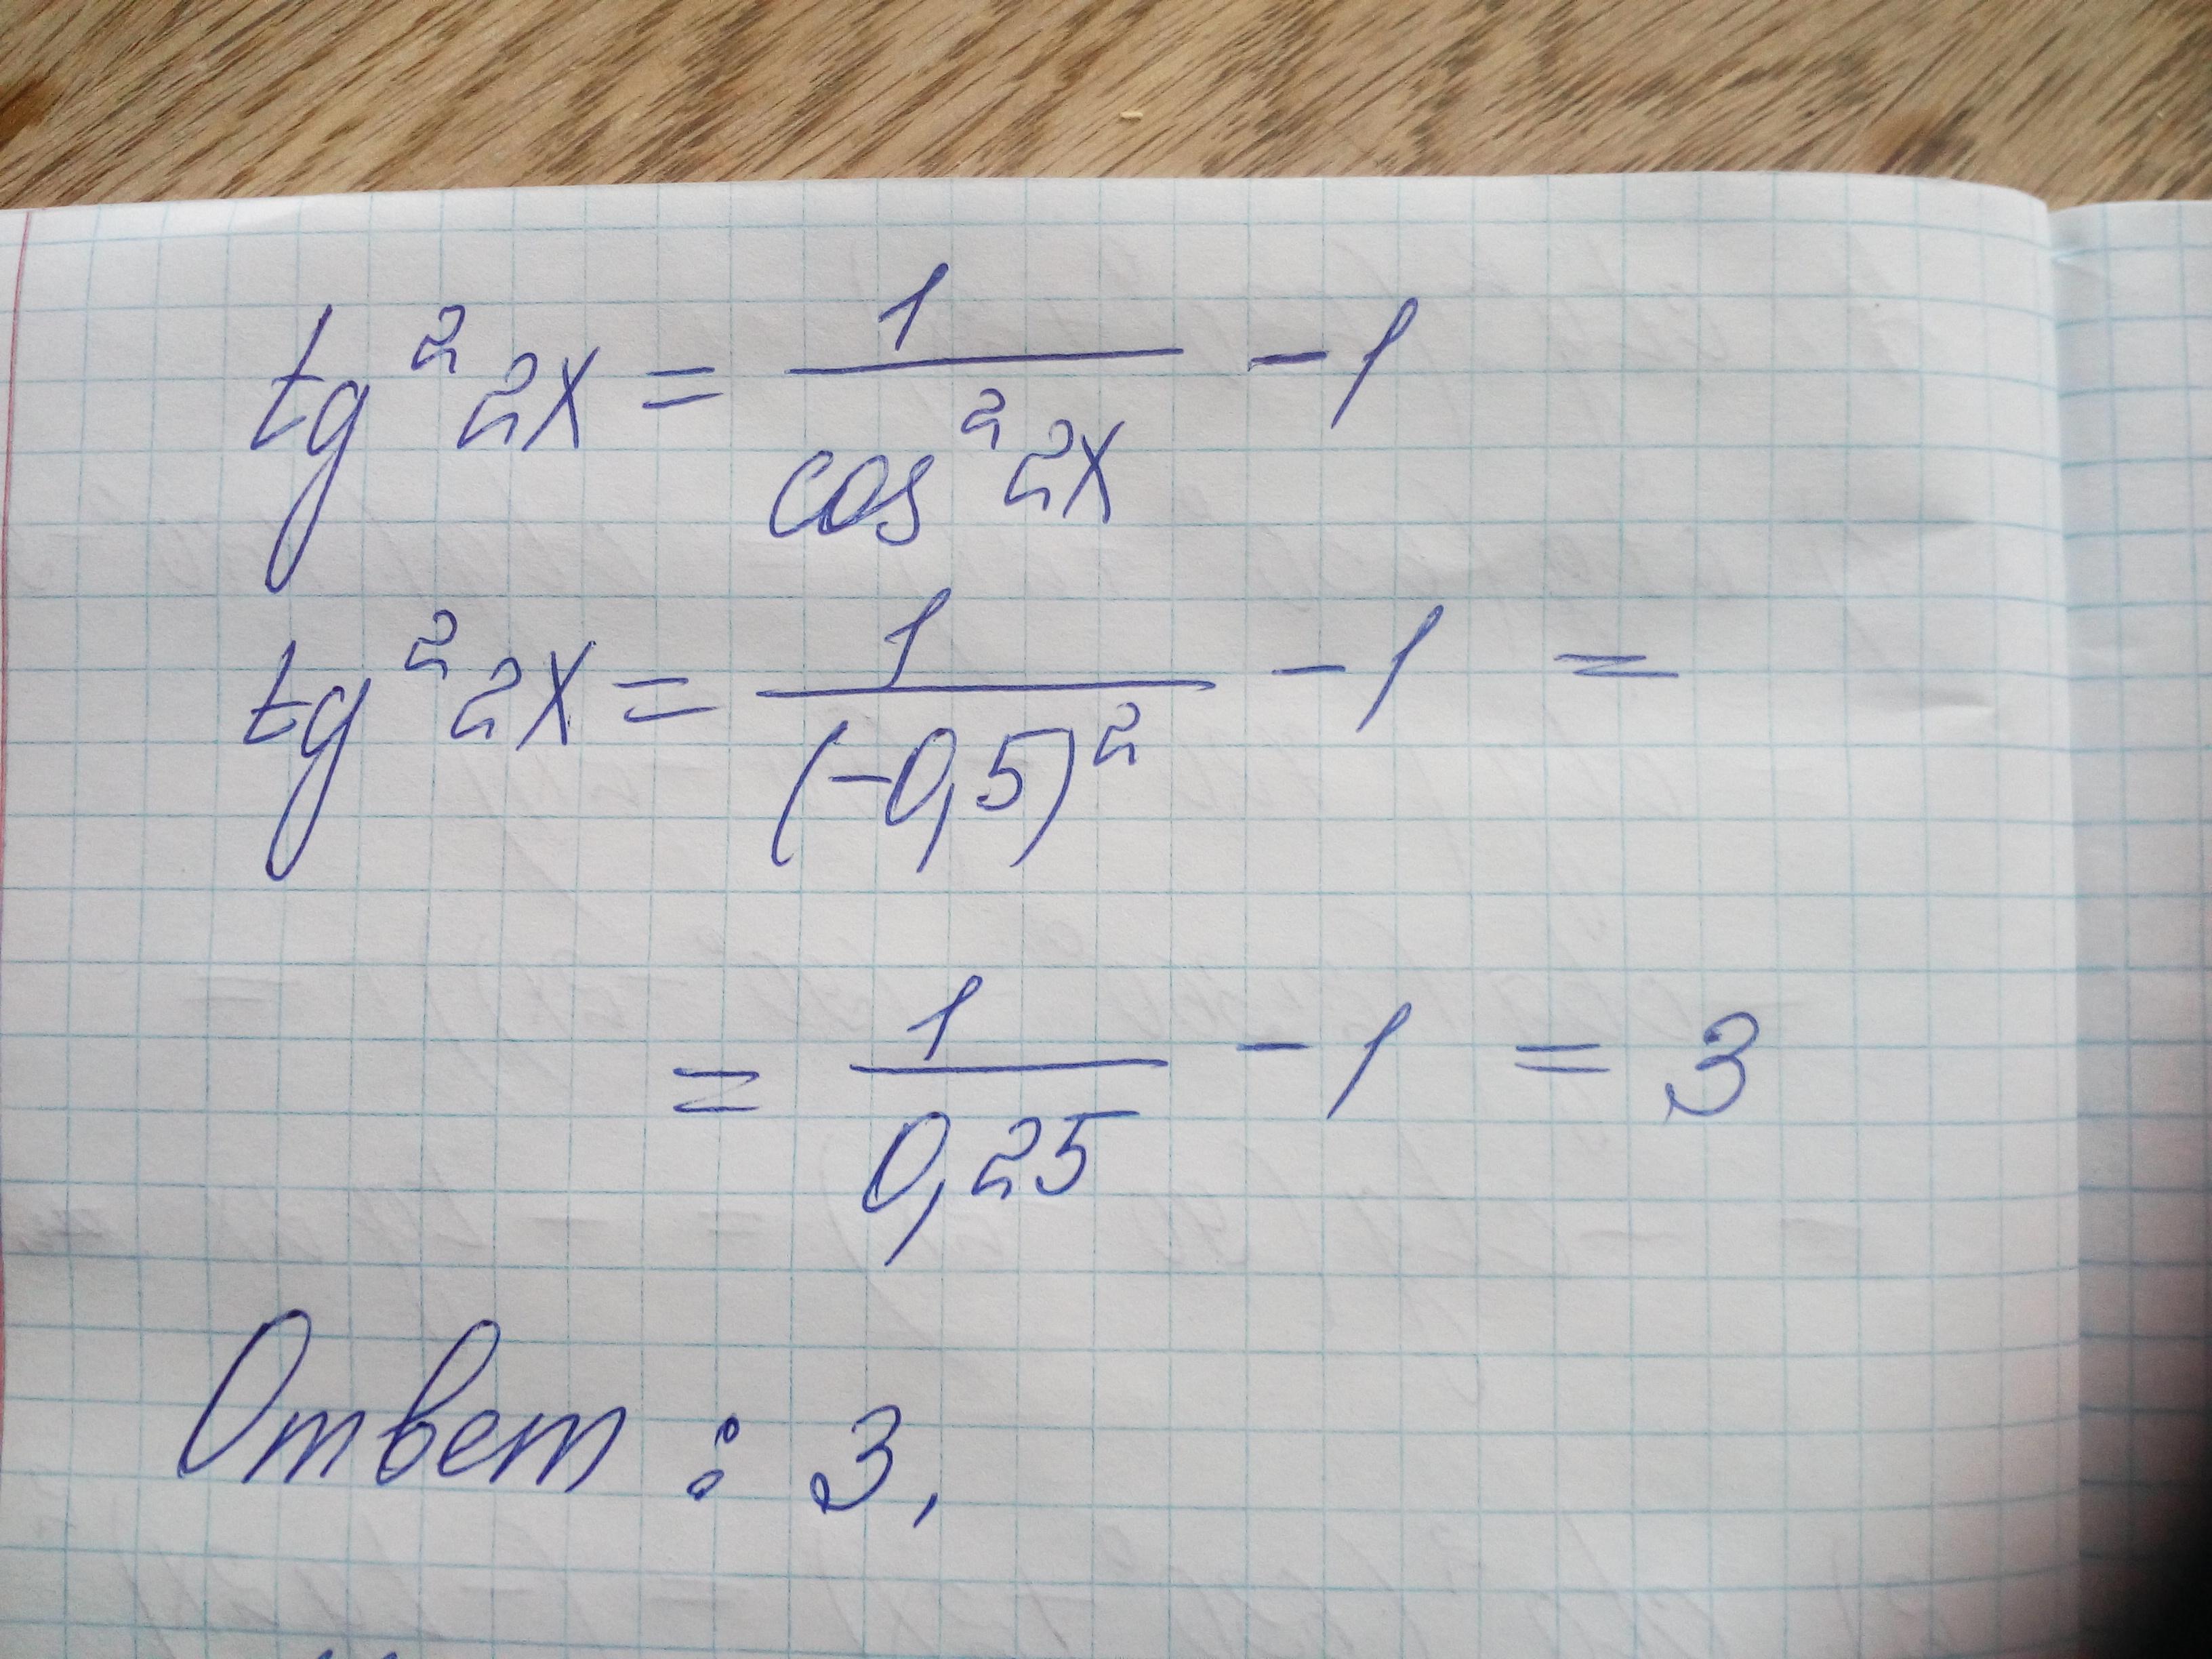 tg²2x = 1/cos²2x - 1
tg²2x = 1/(-0,5)² - 1 =
= 1/0,25 - 1 = 3
Ответ: 3.